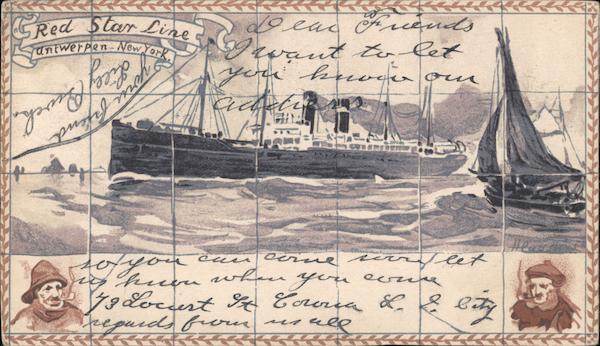 Red Star Line
Antwerpen-New York.
Dear Friends
I want to let
you know our
address
your friend
Lilly
so you can come soon let
us know when you come
73 Locust St Corona L. I. City
regards from us all